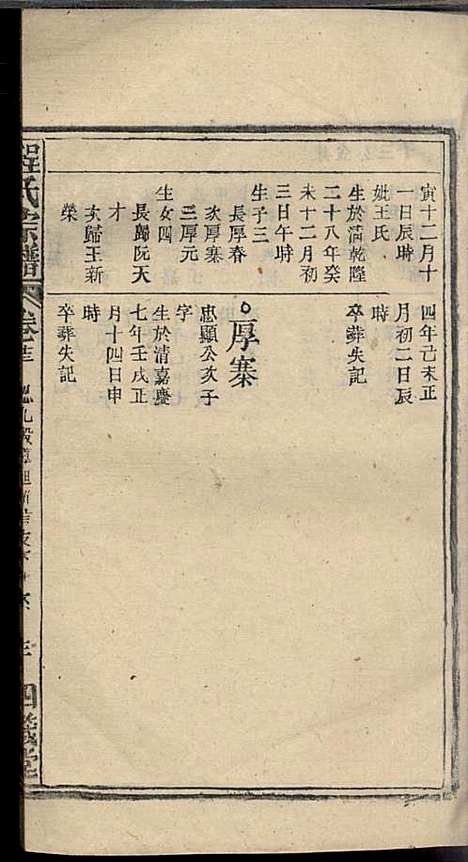 寅十二月十
一日辰時
妣王氏
生於淸乾隆
二十八年癸
未十二月初
三日午時
生子三
長厚春
次厚寨
三厚元
生女四
長歸阮天
才
次歸王新
榮
四年己未正
月初二日辰
時
卒葬失記
厚寨
忠顯公次子
字
生於清嘉慶
七年壬戌正
月十四日申
時
卒葬失記
程氏宗譜